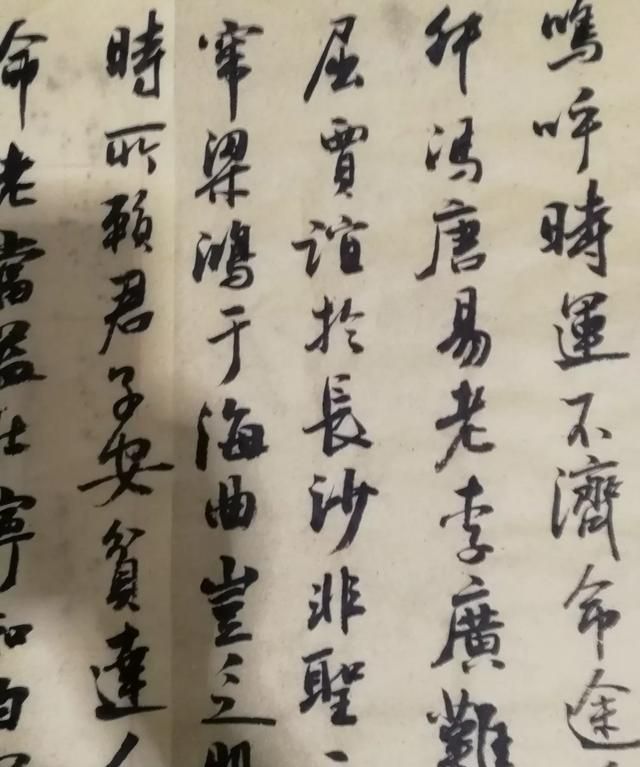 嗚呼時運不濟命途
舛馮唐易老李廣難
屈賈誼於長沙非聖
窜梁鴻于海曲豈乏明
時所賴君子安貧達人
命老當益壯寧知白